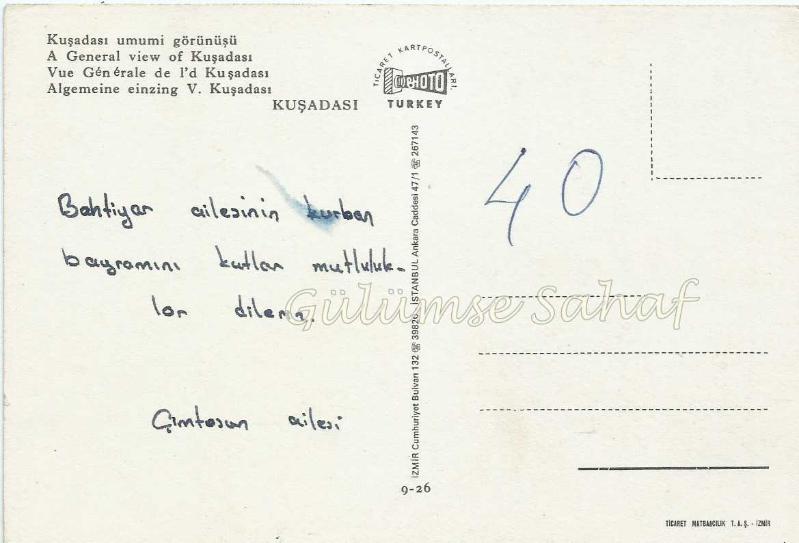 Kuşadası umumi görünüşü
A General view of Kuşadası
Vue Générale de l'd Kuşadası
Algemeine einzing V. Kuşadası
KUŞADASI
TİCARET KARTPOSTALLARI.
COPHOTO
TURKEY
40
Bahtiyar ailesinin kurban
bayramını kutlar mutluluk-
lar dilerim.
Gülümse Sahaf
Çimtosun ailesi
İZMİR Cumhuriyet Bulvarı 132 ☏ 39826 - İSTANBUL Ankara Caddesi 47/1 ☏ 267143
9-26
TİCARET MATBAACILIK T. A. Ş. - İZMİR